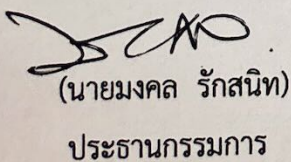 (นายมงคล รักสนิท)
ประธานกรรมการ